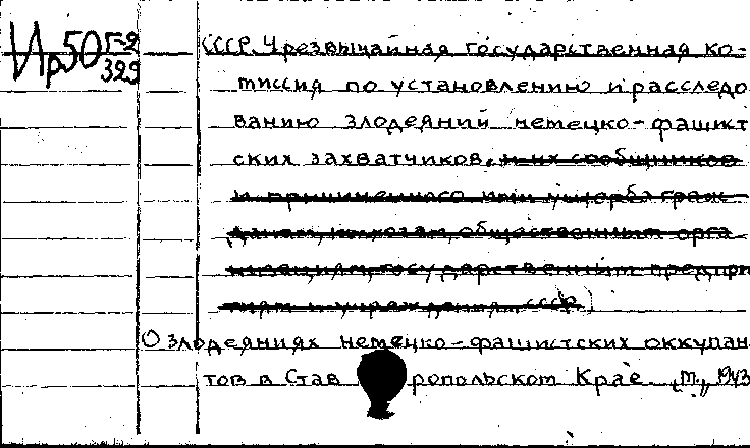 Ир50 Г-2
329
СССР. Чрезвычайная государственная ко-
миссия по установлению и расследо
ванию злодеяний немецко-фашист
ских захватчиков, и их сообщников
и причиненного ими ущерба граж-
данам, колхозам, общественным орга
низациям, государственным предпри
тиям и учреждениям СССР)
О злодеяниях немецко-фашистских оккупан
тов в Став ропольском Крае. М., 1943